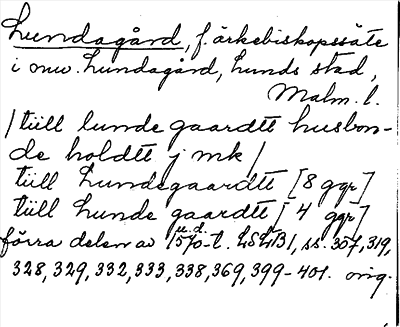 Lundagård, f. ärkebiskopssäte
i nuv. Lundagård, Lunds stad,
Malm. l.
/ tiill lunde gaardtt husbon-
de holdtt j mk /
tiill Lundegaardtt [8 ggr]
tiill Lunde gaardtt [4 ggr]
förra delen av 1570-t. LSLTB1, ss. 307, 319,
u.d.
328, 329, 332, 333, 338, 369, 399-401. orig.